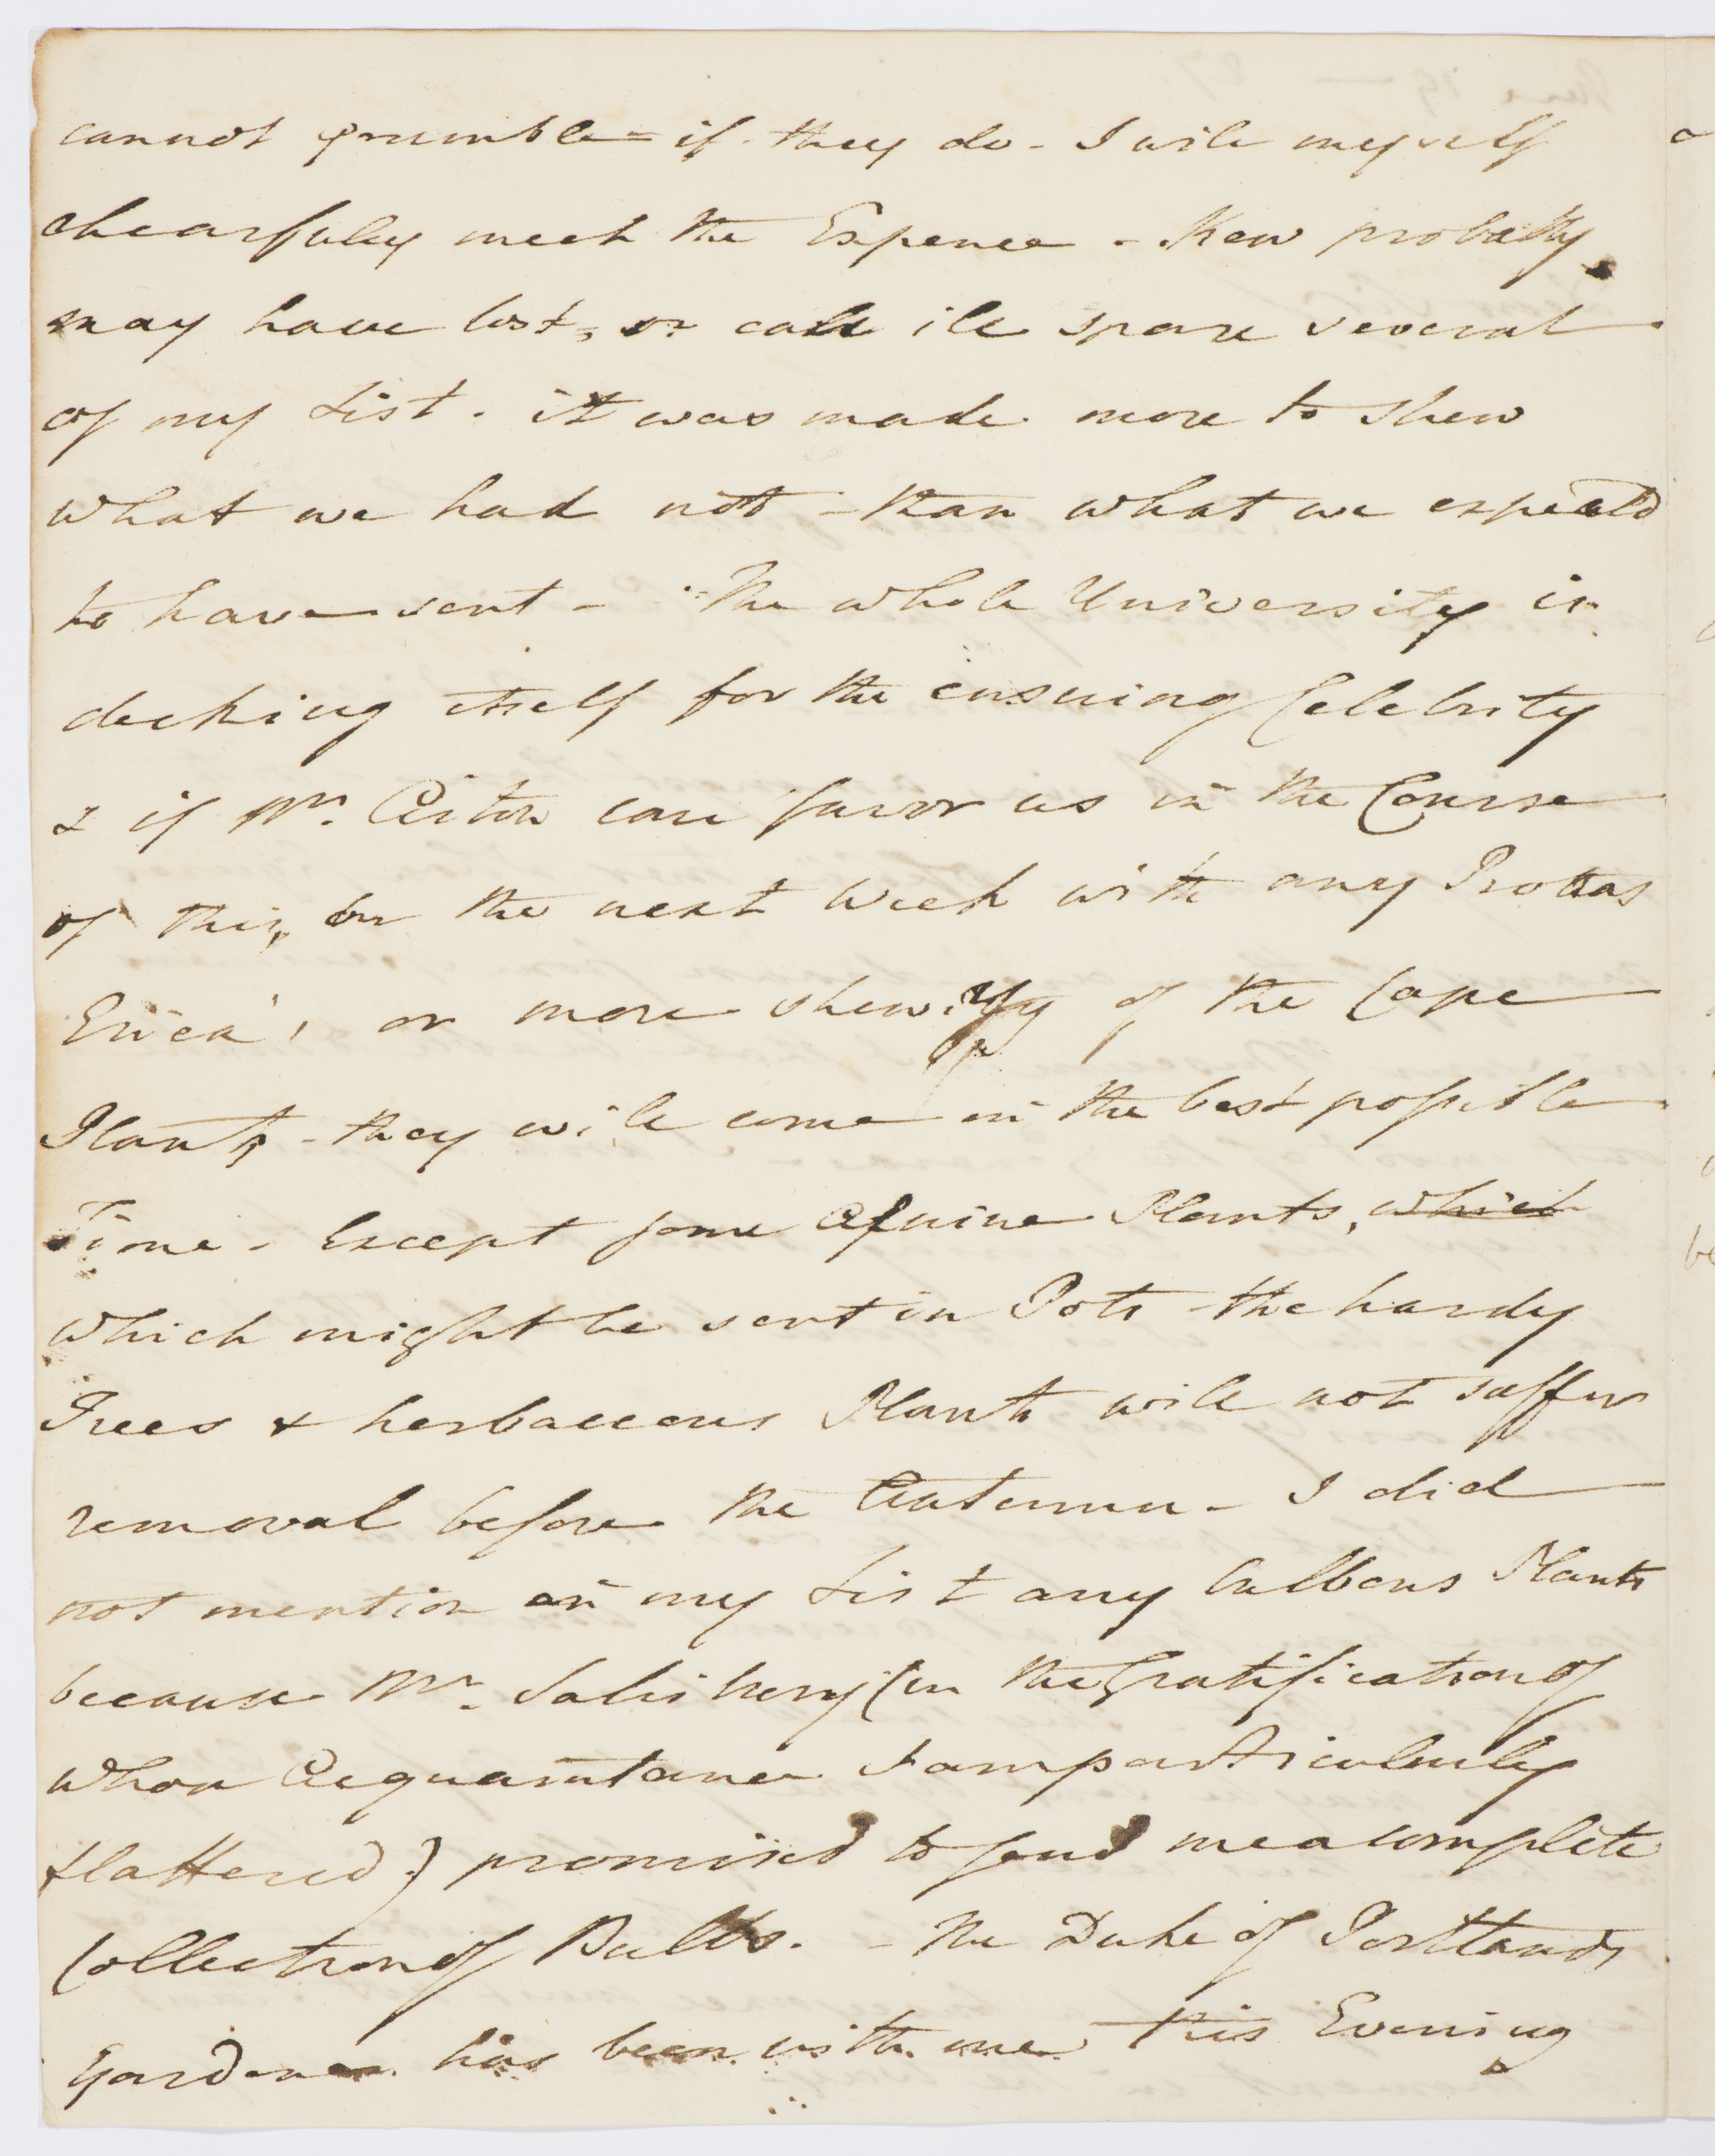 cannot grumble - if they do - I will myself
chearfully meet the Expence - Kew probably
may have lost, or call ill spare several
of my List. it was made more to shew
what we had not - than what we expected
to have sent - The whole University is
decking itself for the ensuing Celebrity
& if Mr. Aiton can favor us in the Course
of this, or the next Week with any Proteas
Erica's or more shewy of the Cape
Plants - they will come in the best possible
Time - Except some Alpine Plants, which
which might be sent in Pots - the hardy
Trees & herbaceous Plants will not suffer
removal before the Autumn - I did
not mention in my List any bulbous Plants
because Mr. Salisbury (in the Gratification of
whose Acquaintance I am particularly
flattered) promised to send me a complete
Collection of Bulbs. - The Duke of Portlands
Gardener has been with me this Evening